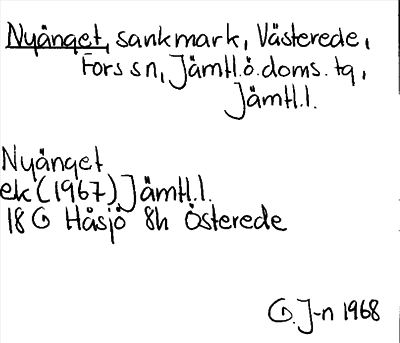 Nyänget, sankmark, Västerede,
Fors sn, Jämtl.ö.doms. tg,
Jämtl.l.
Nyänget
ek (1967) Jämtl.l.
18 G Håsjö 8h Österede
G. J-n 1968